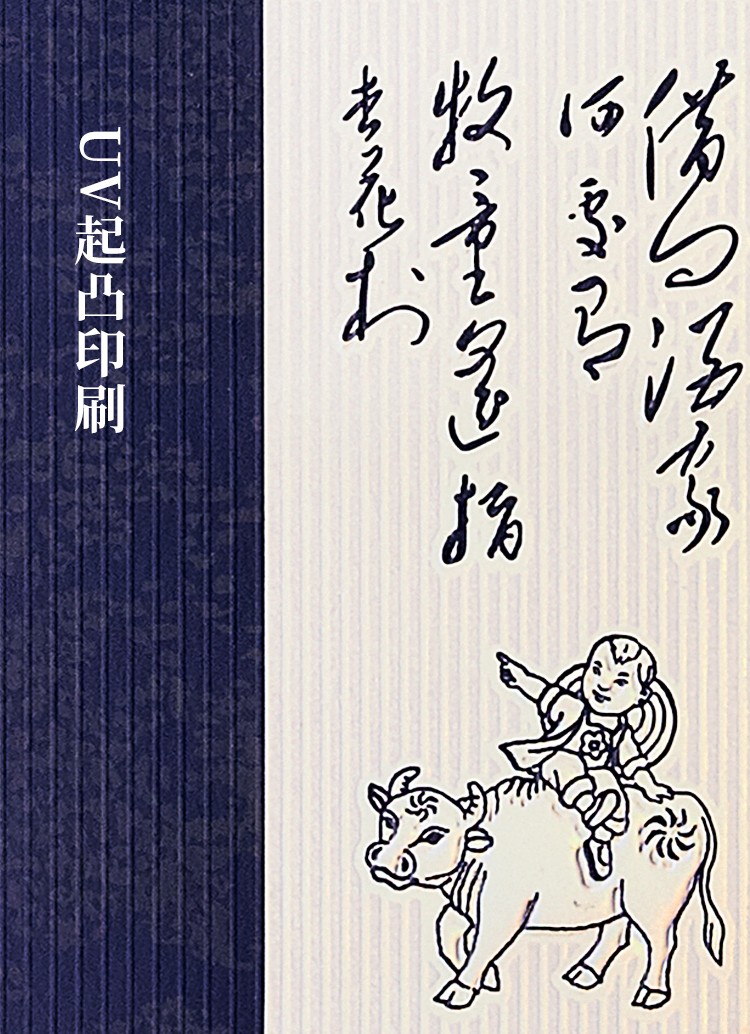 UV起凸印刷
借问酒家
何處有
牧童遥指
杏花村